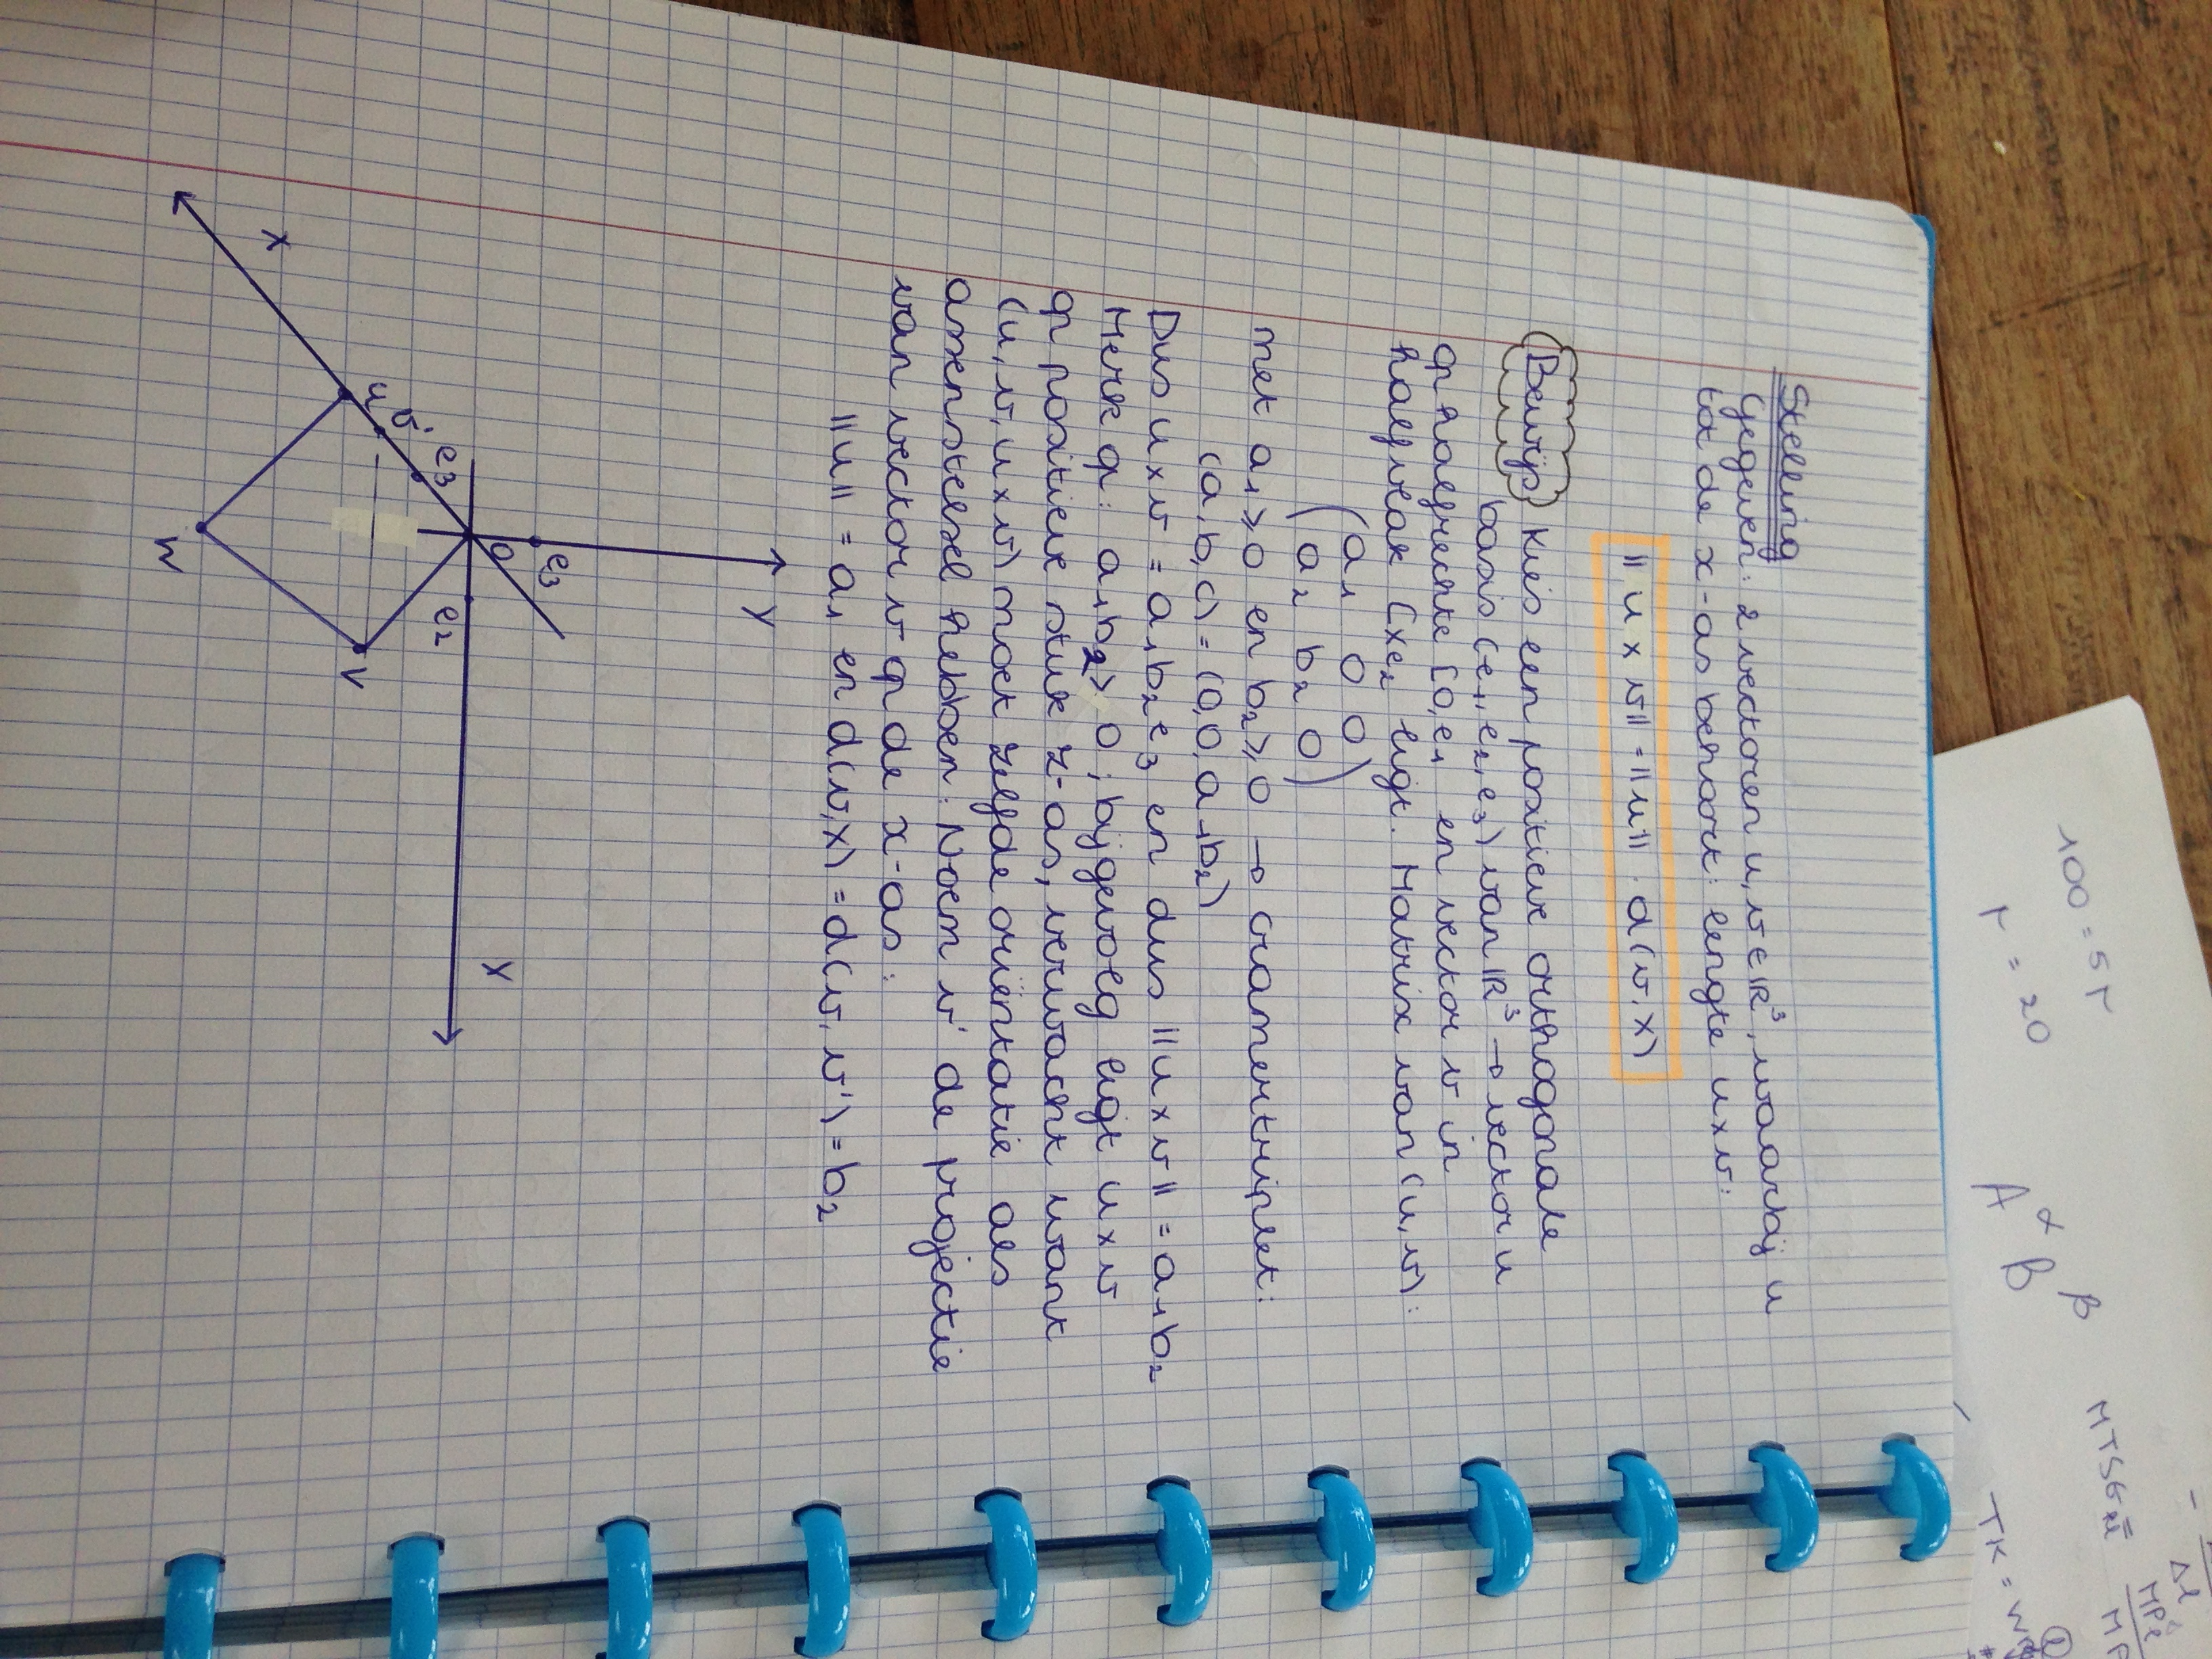 Stelling
Gegeven: 2 vectoren u, v ∈ ℝ³, waarbij u
tot de x-as behoort: lengte u x v:
|| u x v|| = ||u|| . d(v, X)
Bewijs Kies een positieve orthogonale
basis (e₁, e₂, e₃) van ℝ³ → vector u
op halfrechte [0, e₁ en vector v in
halfvlak [xe₂ ligt. Matrix van (u, v):
(a₁ 0 0)
(a₂ b₂ 0)
met a₁ ⩾ 0 en b₂ ⩾ 0 →
(a, b, c) = (0, 0, a₁b₂)
Dus u x v = a₁b₂e₃ en dus || u x v || = a₁b₂
Merk op: a₁b₂ > 0; bijgevolg ligt u x v
op positieve stuk z-as, want
(u, v, u x v) moet zelfde oriëntatie als
assenstelsel hebben. Noem v' de projectie
van vector v op de x-as:
||u|| = a₁ en d(v, X) = d(v, v') = b₂
Y
e₃
0
e₂
Y
e₃
v'
u
X
V
W
100 = 5r
r = 20
A α B β
MTSG =
TK =